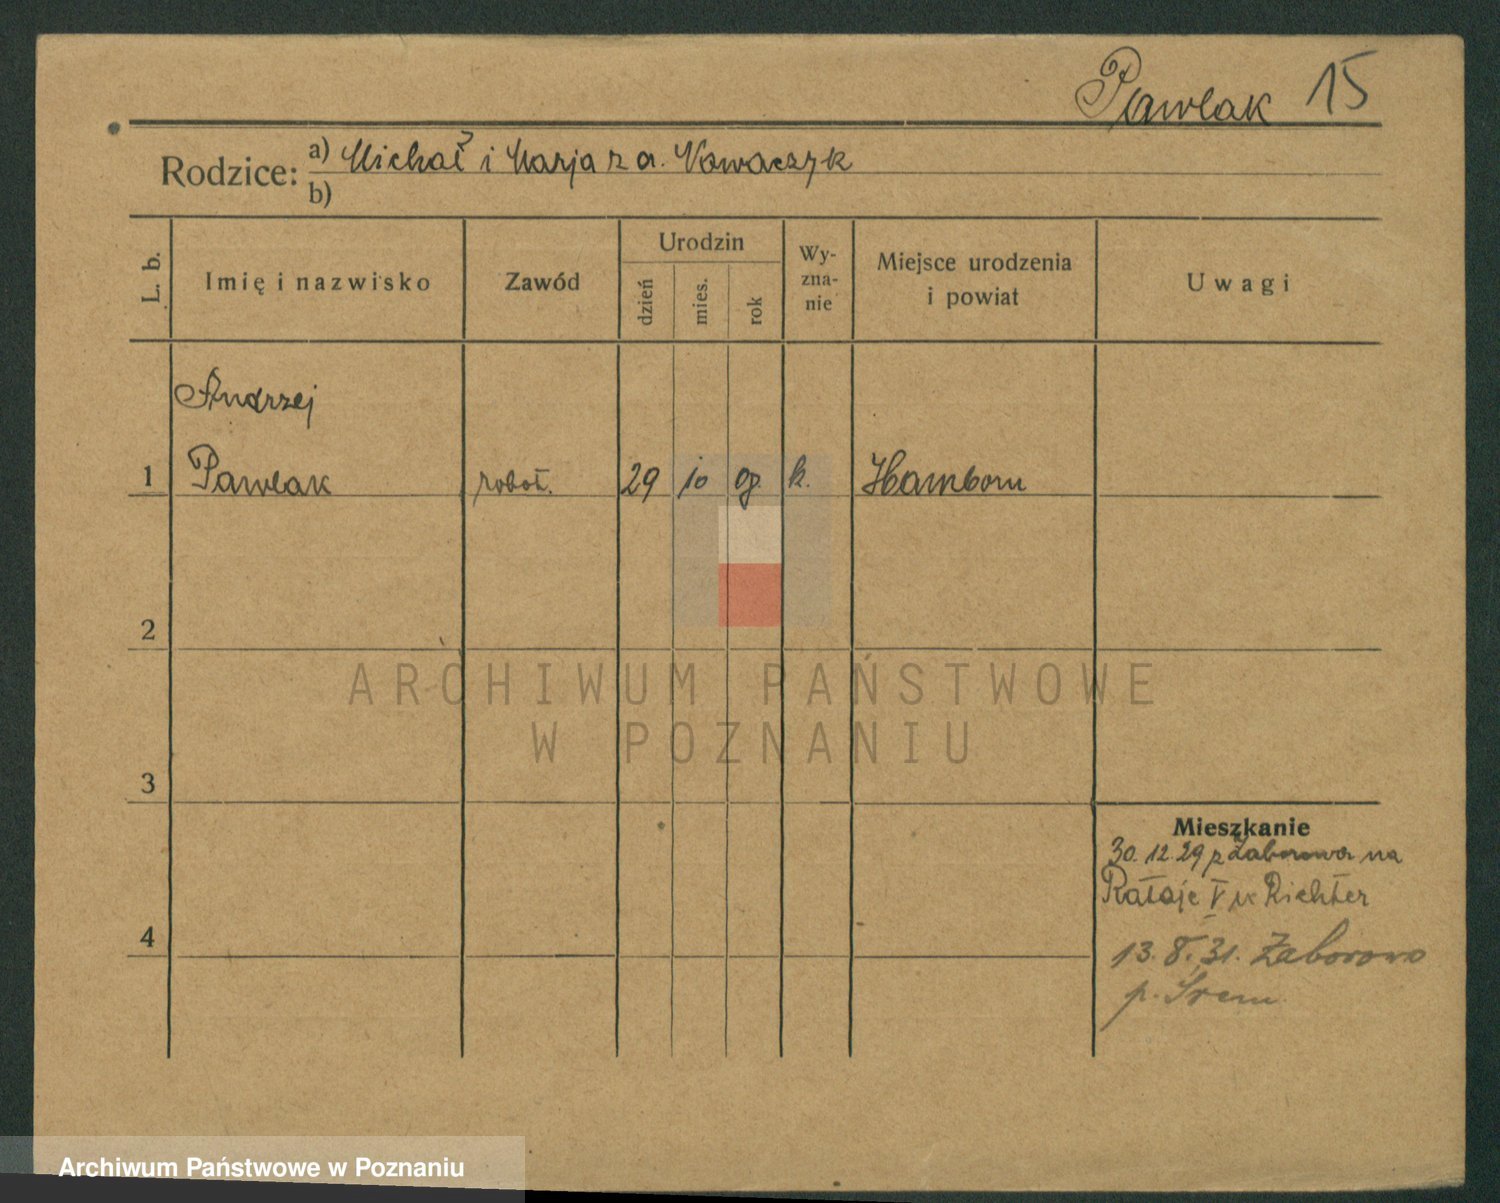 Pawlak 15
Rodzice: a) Michał i Marja z d. Nowaczyk
b)
L. b. Imię i nazwisko Zawód Urodzin dzień mies. rok Wy-zna-nie Miejsce urodzenia i powiat Uwagi
Andrzej
1 Pawlak robot. 29 10 09. k. Hamborn
2
ARCHIWUM PAŃSTWOWE
W POZNANIU
3
Mieszkanie
30. 12. 29 z Zaborowa na
Rataje V Richter
4
13. 8. 31. Zaborowo
p. Śrem
Archiwum Państwowe w Poznaniu